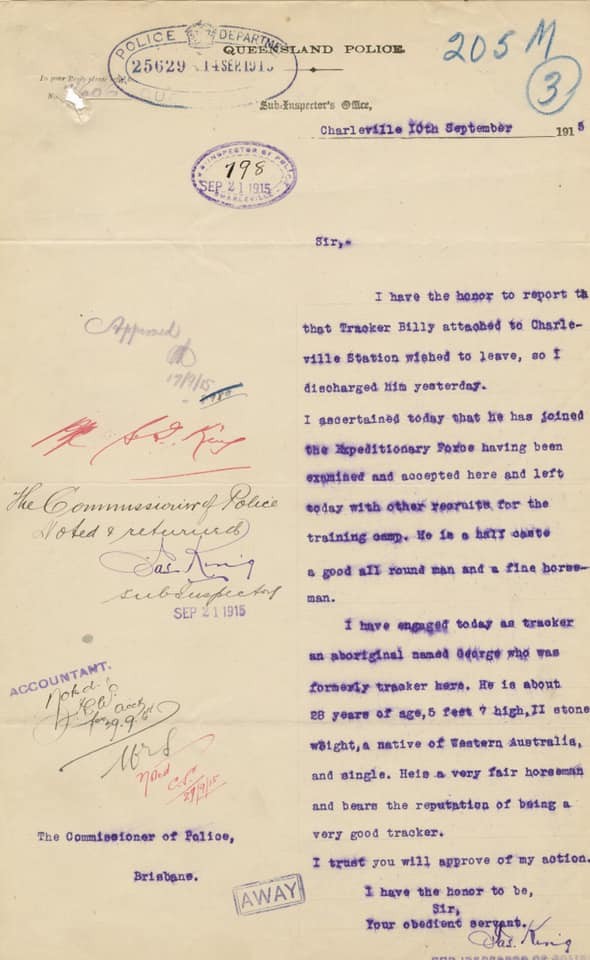 POLICE DEPARTMENT
25629 14 SEP. 1915
QUEENSLAND POLICE.
205 M
3
In your Reply please
No.
Sub-Inspector's Office,
Charleville 10th September 1915
INSPECTOR OF POLICE
798
SEP 21 1915
CHARLEVILLE
Sir,-
I have the honor to report th
that Tracker Billy attached to Charle-
ville Station wished to leave, so I
discharged him yesterday.
I ascertained today that he has joined
the Expeditionary Force having been
examined and accepted here and left
today with other recruits for the
training camp. He is a half caste
a good all round man and a fine horse-
man.
I have engaged today as tracker
an aboriginal named George who was
formerly tracker here. He is about
28 years of age,5 feet 7 high,II stone
weight,a native of Western Australia,
and single. Heis a very fair horseman
and bears the reputation of being a
very good tracker.
I trust you will approve of my action.
I have the honor to be,
Sir,
Your obedient servant.
Jas. King
Approved
17/9/15
S. I. King
The Commissioner of Police
Noted & returned
Jas. King
sub Inspector
SEP 21 1915
ACCOUNTANT.
Noted
29.9.15
Noted
29/9/15
The Commissioner of Police,
Brisbane.
AWAY